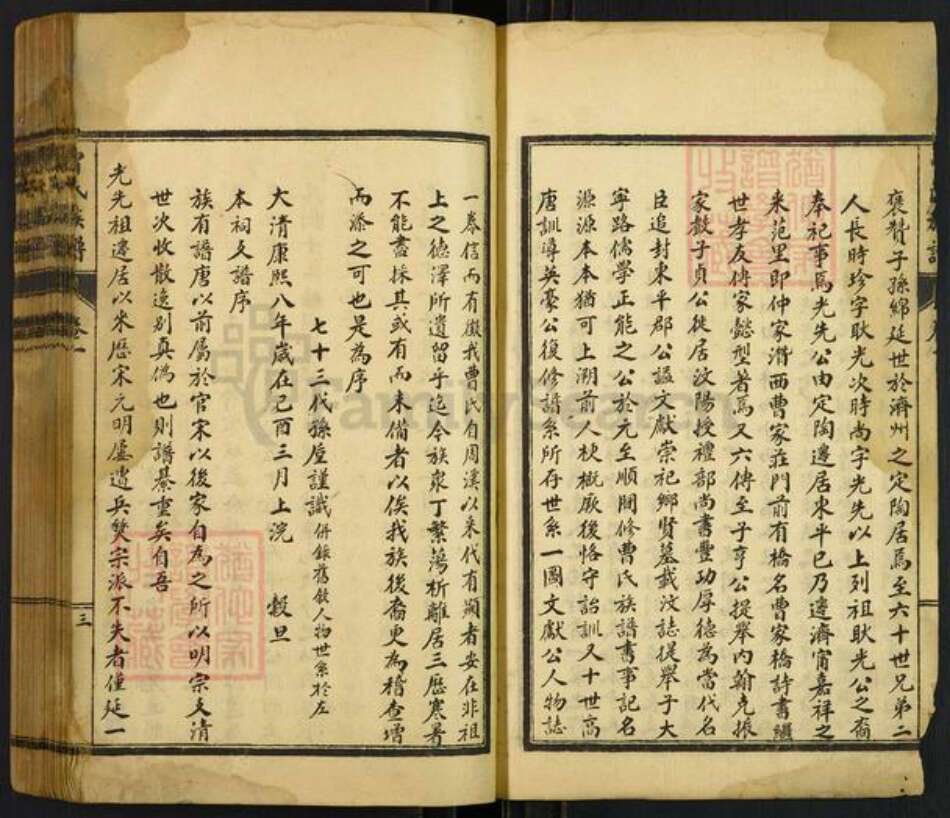 褒贊子孫綿延世於濟州之定陶居焉至六十世兄弟二
人長時珍字耿光次時尚字光先以上列祖耿光公之裔
奉祀事焉光先公由定陶遷居東平已乃遷濟甯嘉祥之
来范里即仲家濟西曹家莊門前有橋名曹家橋詩書繼
世孝友傳家懿型著焉又六傳至子亨公提舉内翰克振
家教子貞公徙居汶陽授禮部尚書豐功厚德為當代名
臣追封東平郡公諡文獻崇祀鄉賢墓载汶誌提舉子大
寧路儒學正能之公於元至順間修曹氏族譜書事記名
源源本本猶可上溯前人梗概厥後恪守詒訓又十世高
唐訓導英豪公復修譜系所存世系一圖文獻公人物誌
一卷信而有徵我曹氏自周漢以来代有顯者安在非祖
上之德澤所遺留乎迄今族衆丁繁蕩析離居三歷寒暑
不能盡採其或有而未備者以俟我族後裔更為稽查增
而添之可也是為序
七十三代孫屋謹識併錄舊敘人物世系於左
大清康熙八年歲在己酉三月上浣 穀旦
本祠又譜序
族有譜唐以前屬於官宋以後家自為之所以明宗支清
世次收散逸别真僞也則譜綦重矣自吾
光先祖遷居以来歷宋元明屢遭兵燹宗派不失者僅延一
曹氏族譜
卷一
三
FamilySearch